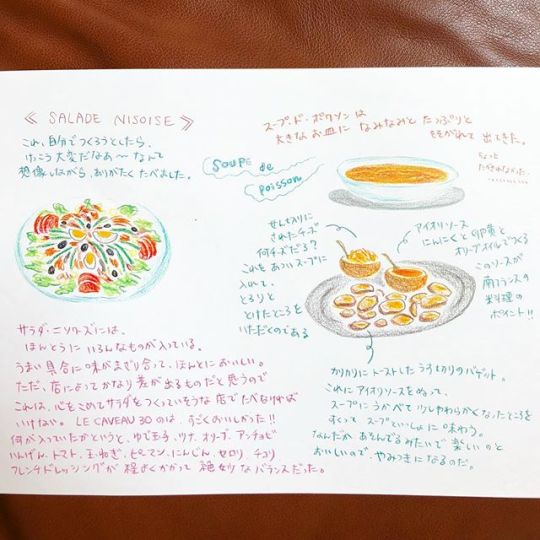 ≪ SALADE NISOISE ≫
これ、自分でつくろうとしたら、
けっこう大変だなあ〜なんて
想像しながら、ありがたくたべました。
サラダ・ニソワーズには、
ほんとうに いろんなものが入っている。
うまい具合に味がまざり合って、ほんとにおいしい。
ただ、店によってかなり差が出るものだと思うので
これは、心をこめてサラダをつくっていそうな店でたべなければ
いけない。 LE CAVEAU 30 のは、すごくおいしかった!!
何が入っていたかというと、ゆで玉子、ツナ、オリーブ、アンチョビ
いんげん、トマト、玉ねぎ、ピーマン、にんじん、セロリ、チコリ
フレンチドレッシングが 程よくかかって 絶妙なバランスだった。
スープ・ド・ポワソンは
大きなお皿に なみなみと たっぷりと
そそがれて 出てきた。
ちょっと
Soupe de
Poisson
せん切りに
されたチーズ
何チーズだろ?
これをあついスープに
入れて、
とろりと
とけたところを
いただくのである
アイオリソース
にんにくと卵黄と
オリーブオイルでつくる
このソースが
南フランスの
料理の
ポイント!!
かりかりにトーストしたうす切りのバゲット。
これにアイオリソースをぬって、
スープにうかべて 少しやわらかくなったところを
すくって スープといっしょに 味わう。
なんだか あそんでるみたいで 楽しいのと
おいしいので、やみつきになるのだ。